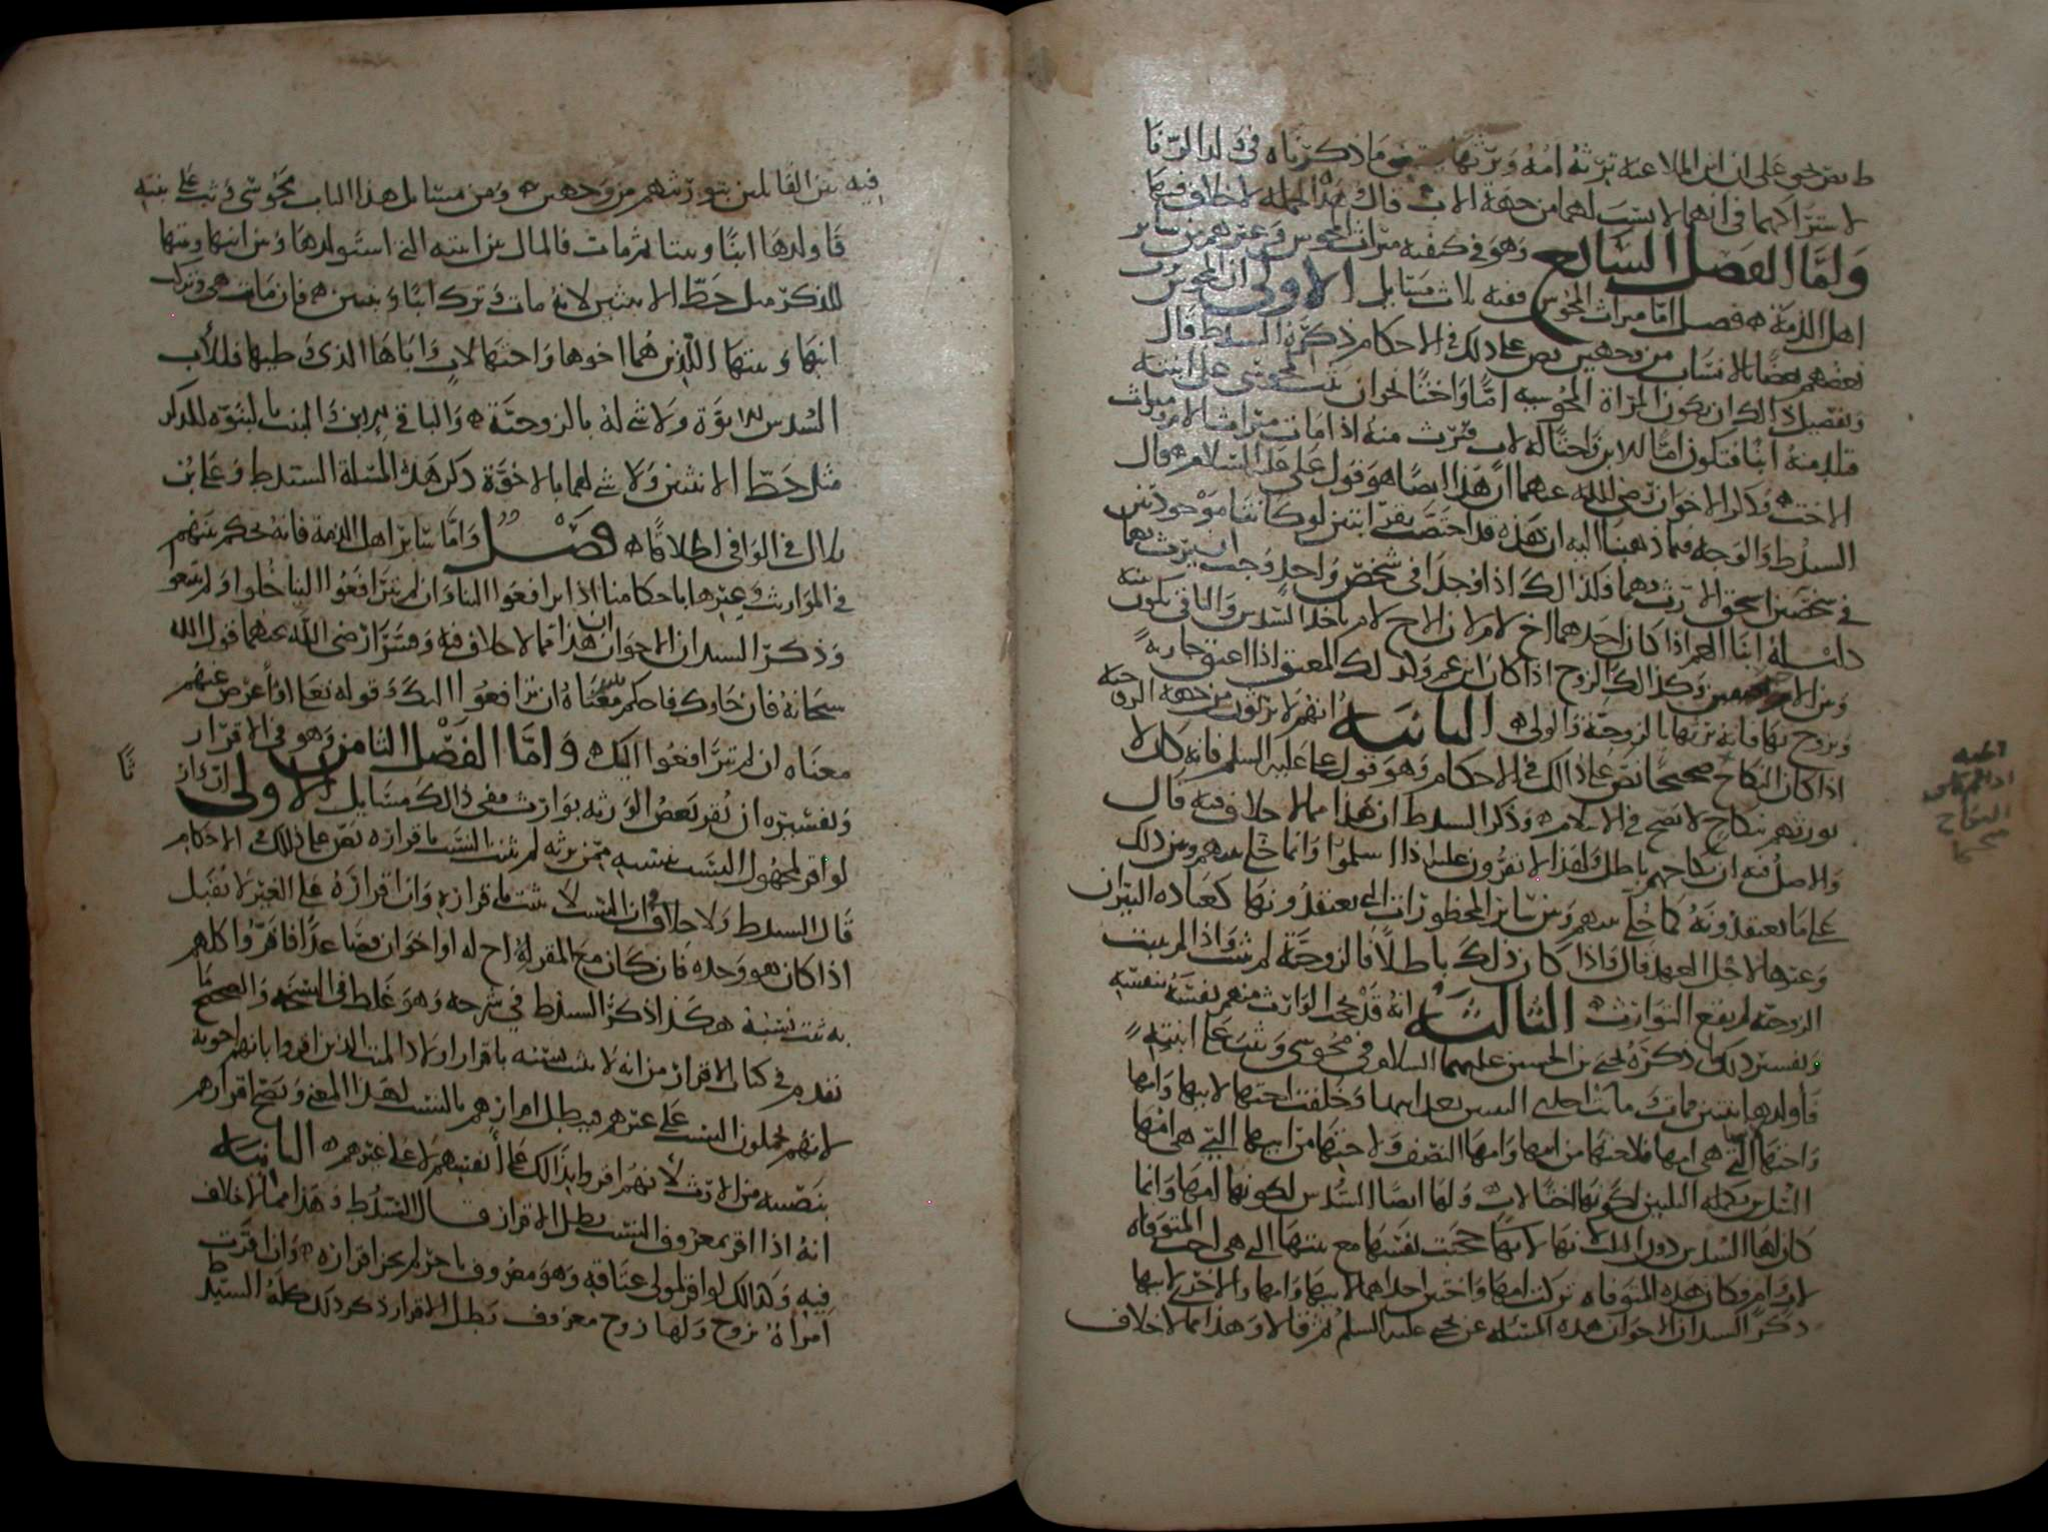 ط نص يحيى على ان ابن الملاعنة ترثه امه ويرثها وما ذكرناه في ولد الزنا
لاشتراكهما في انهما لا نسب لهما من جهة الاب قال وهذه الجملة لا خلاف فيها
واما الفصل السابع وهو في كيفية ميراث المجوس وغيرهم من سائر
اهل الذمة فصل اما ميراث المجوس ففيه ثلاث مسايل الاولى ان المجوس يرث
بعضهم بعضا بالانساب من وجهين نص على ذلك في الاحكام ذكره السيد ط قال
وتفصيل ذلك ان تكون المراة المجوسية اما واختا نحو ان يثب المجوسي على ابنته
فتلد منه ابنا فتكون اما للابن واختا له لاب فترث منه اذا مات ميراث الام وميراث
الاخت وذكر الاخوان رضي الله عنهما ان هذا ايضا هو قول علي عليه السلام قال
السيد ط والوجه فيما ذهبنا اليه ان هذه قد اختصت بقرابتين لو كانتا موجودتين
في شخصين استحق الارث بهما وكذلك اذا وجدا في شخص واحد وجب ان يرث بهما
دليله ابنا العم اذا كان احدهما اخ لام لان الاخ لام ياخذ السدس والباقي يكون بينه
وبين الاخر نصفين وكذلك الزوج اذا كان ابن عم وكذلك المعتق اذا اعتق جارية
وتزوج بها فانه يرثها بالزوجية والولي الثانية انهم لا يرثون من جهة الزوجية الا
اذا كان النكاح صحيحا نص على ذلك في الاحكام وهو قول علي عليه السلم فانه كان لا
يورثهم بنكاح لا يصح في الاسلام وذكر السيد ط ان هذا مما لا خلاف فيه قال
والاصل فيه ان نكاحهم باطل ولهذا لا يقرون عليه اذا اسلموا وانما خلي بينهم وبين ذلك
على ما يعتقدونه كما خلي بينهم وبين سائر المحظورات التي يعتقدونها كعبادة النيران
وغيرها لاجل العهد قال واذا كان ذلك باطلا فالزوجية لم تثبت واذا لم تثبت
الزوجية لم يقع التوارث الثالثة انه قد يحجب الوارث منهم نفسه بنفسه
وتفسير ذلك ما ذكره يحيى بن الحسين عليهما السلام في مجوسي وثب على ابنته
فاولدها ابنتين ومات ثم ماتت احدى البنتين بعد ابيها وخلفت اختها لابيها وامها
واختها التي هي امها فلاختها من ابيها وامها النصف ولاختها من ابيها التي هي امها
السدس تكملة الثلثين لكونها اختا لاب ولها ايضا السدس لكونها امها وانما
كان لها السدس دون الثلث لانها حجبت نفسها بنفسها مع بنتها التي هي اخت المتوفاة
لاب وام وكان هذه المتوفاة تركت امها واختين احداهما لابيها وامها والاخرى لابيها
ذكر السيدان الاخوان هذه المسئلة عن يحيى عليه السلم ثم قالا وهذا مما لا خلاف
النكاح
فيه بين القائلين بتوريثهم من وجهين ومن مسائل هذا الباب مجوسي وثب على بنته
فاولدها ابنا وبنتا ثم مات فالمال بين ابنته التي استولدها وبين ابنها وبنتها
للذكر مثل حظ الانثيين لانه مات وترك ابنا وبنتين فان ماتت هي وتركت
ابنها وبنتها اللذين هما اخوها واختها لاب واباها الذي وطيها فللأب
السدس بالابوة ولا شي له بالزوجية والباقي بين ابن والبنت بالبنوة للذكر
مثل حظ الانثيين ولا شي لهما بالاخوة ذكر هذه المسئلة السيد ط وعلي بن
بلال في الوافي اطلاقا فصل واما سائر اهل الذمة فانه يحكم بينهم
في المواريث وغيرها باحكامنا اذا ترافعوا الينا وان لم يترافعوا الينا خلوا ولم يمنعوا
وذكر السيدان الاخوان ان هذا مما لا خلاف فيه وفسرا رضي الله عنهما قول الله
سبحانه فان جاوك فاحكم بينهم معناه ان ترافعوا اليك وقوله تعالى او أعرض عنهم
معناه ان لم يترافعوا اليك واما الفصل الثامن وهو في الاقرار
وتفسيره ان يقر بعض الورثة بوارث ففي ذلك مسايل الاولى ان وارثا
لو اقر لمجهول النسب بنسبه ممن يرثه لم يثبت النسب باقراره نص على ذلك في الاحكام
قال السيد ط ولا خلاف في ان النسب لا يثبت باقراره وان اقراره على الغير لا يقبل
اذا كان هو وحده فان كان مع المقر له اخ له او اخوان فصاعدا فاقروا كلهم
به ثبت نسبه هكذا ذكر السيد ط في شرحه وهو غلط في النسخة والصحيح ما
تقدم في كتاب الاقرار من انه لا يثبت نسبه باقرار اولاد الميت الذين اقروا بانهم اخوته
لانهم يحملون النسب على غيرهم فيبطل اقرارهم بالنسب لهذا المعنى ويصح اقرارهم
بنصيبه من الارث لانهم اقروا بذلك على أنفسهم لا على غيرهم الثانية
انه اذا اقر بمعروف النسب بطل الاقرار قال السيد ط وهذا مما لا خلاف
فيه وكذلك لو اقر لمولى عتاقه وهو معروف باخر لم يجز اقراره وان اقرت
امرأة بزوج ولها زوج معروف بطل الاقرار ذكر ذلك كله السيد ط